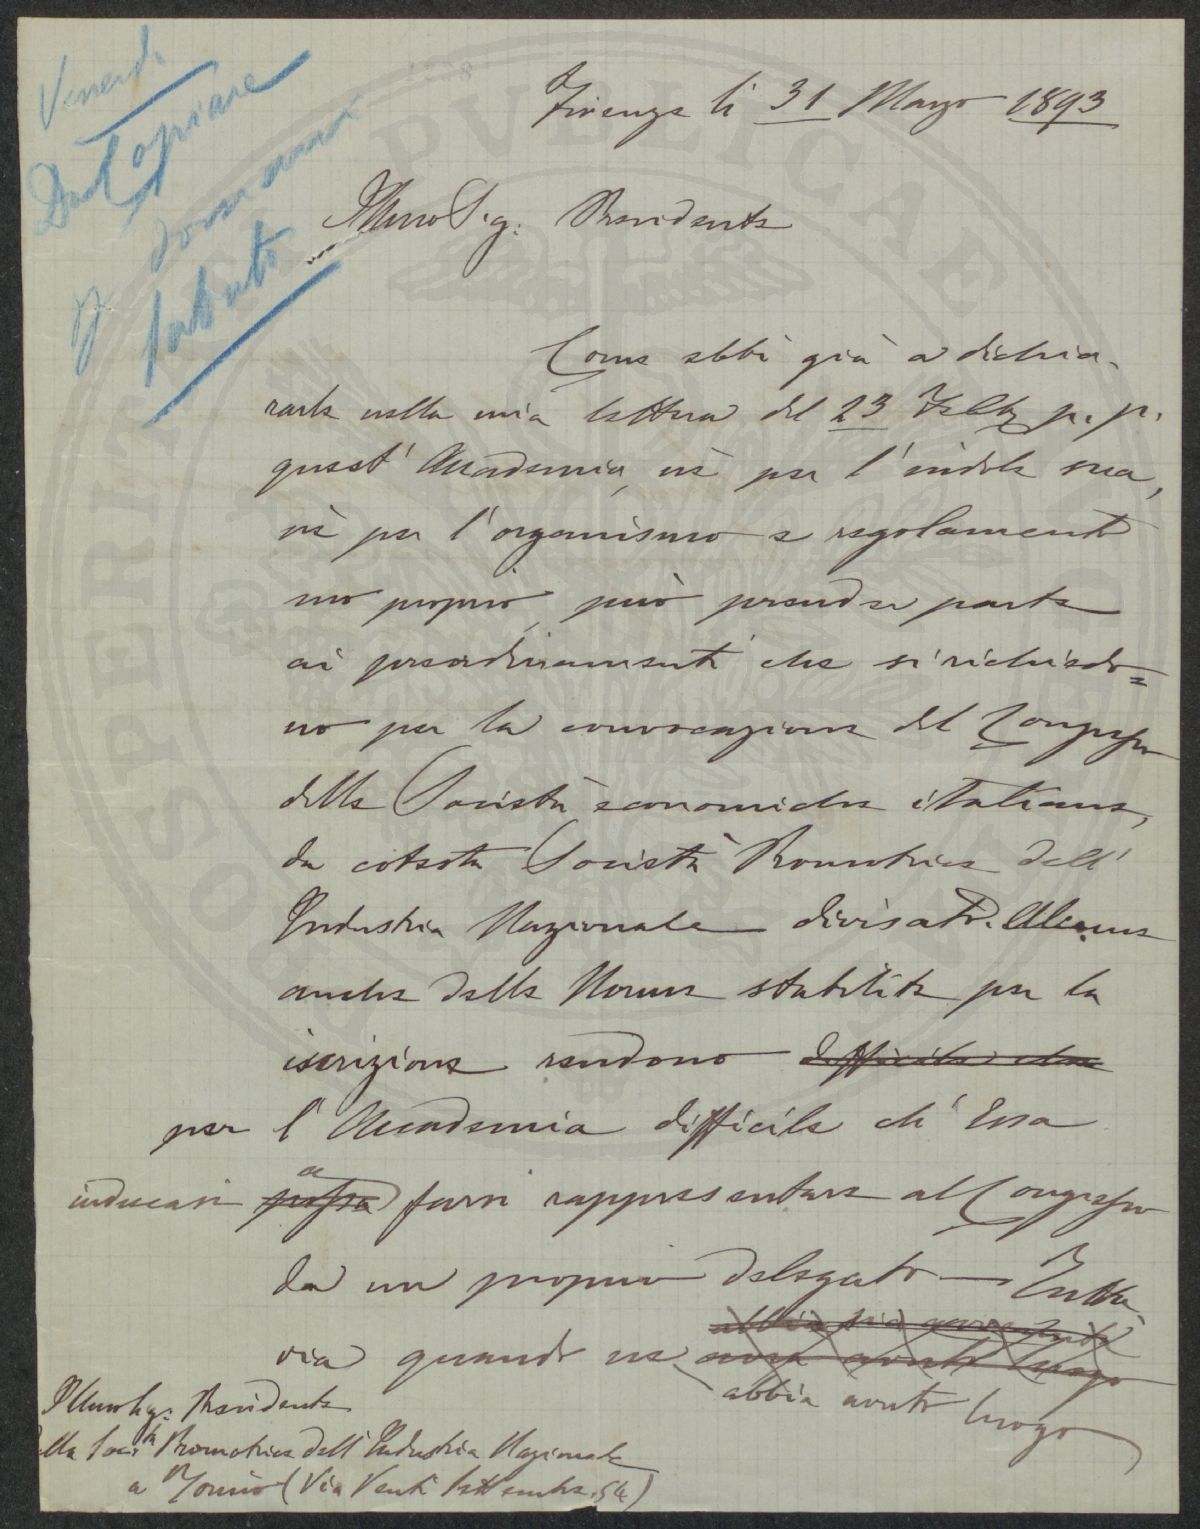 Venerdì
Dact opiare
domani
Firenze li 31 Marzo 1893
Illmo Sig: Presidente
Come ebbi già a dichia-
rarle nella mia lettera del 23 Febb. p. p.
quest' Accademia, nè per l'indole sua,
nè per l'organismo e regolamento
suo proprio, può prender parte
ai preordinamenti che si richiedo=
no per la convocazione del Congresso
delle Società economiche italiane,
da cotesta Società Promotrice dell'
Industria Nazionale divisato. Alcune
anche delle Norme stabilite per la
iscrizione rendono difficile che
per l'Accademia difficile ch' Essa
inducasi possa a farsi rappresentare al Congresso
da un proprio delegato — Tutta-
abbia
via quando ne avrà avuto luogo
abbia avuto luogo
Illmo Sig: Presidente
della Socità Promotrice dell' Industria Nazionale
a Torino (Via Venti Settembre. 54)
PROSPERITATI PUBLICAE